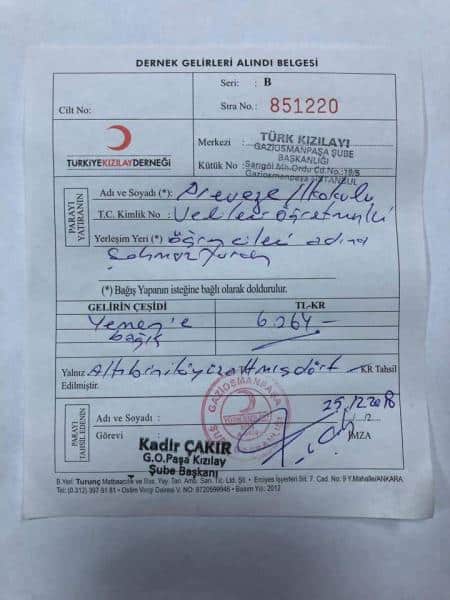 DERNEK GELİRLERİ ALINDI BELGESİ
Seri: : B
Cilt No:
Sıra No.: 851220
TÜRKİYE KIZILAY DERNEĞİ
Merkezi : TÜRK KIZILAYI
GAZİOSMANPAŞA ŞUBE
BAŞKANLIĞI
Kütük No : Sarıgöl Mh.Ordu Cd.No.:18/5
Gaziosmanpaşa İSTANBUL
PARAYI YATIRANIN
Adı ve Soyadı (*): Preveze İlkokulu
T.C. Kimlik No : Velileri öğretmenleri
Yerleşim Yeri (*) : öğrencileri adına
(*) Bağış Yapanın isteğine bağlı olarak doldurulur.
GELİRİN ÇEŞİDİ TL-KR
Yemen'e 6.264
bağış
Yalnız Altıbinikiyüzaltmışdört KR Tahsil
Edilmiştir.
GAZİOSMANPAŞA
PARAYI TAHSİL EDENİN
Adı ve Soyadı :
Görevi
İMZA
Kadir ÇAKIR
G.O.Paşa Kızılay
Şube Başkanı
B.Yeri: Tunanç Matbaacılık ve Rek. Yay. Tan. Amb. San. Tic. Ltd. Şti. • Erciyes İşyerleri Sit. 7. Cad. No: 9 Y.Mahalle/ANKARA
Tel: (0.312) 397 91 81 • Ostim Vergi Dairesi V. NO: 8720599946 • Basım Yılı: 2012